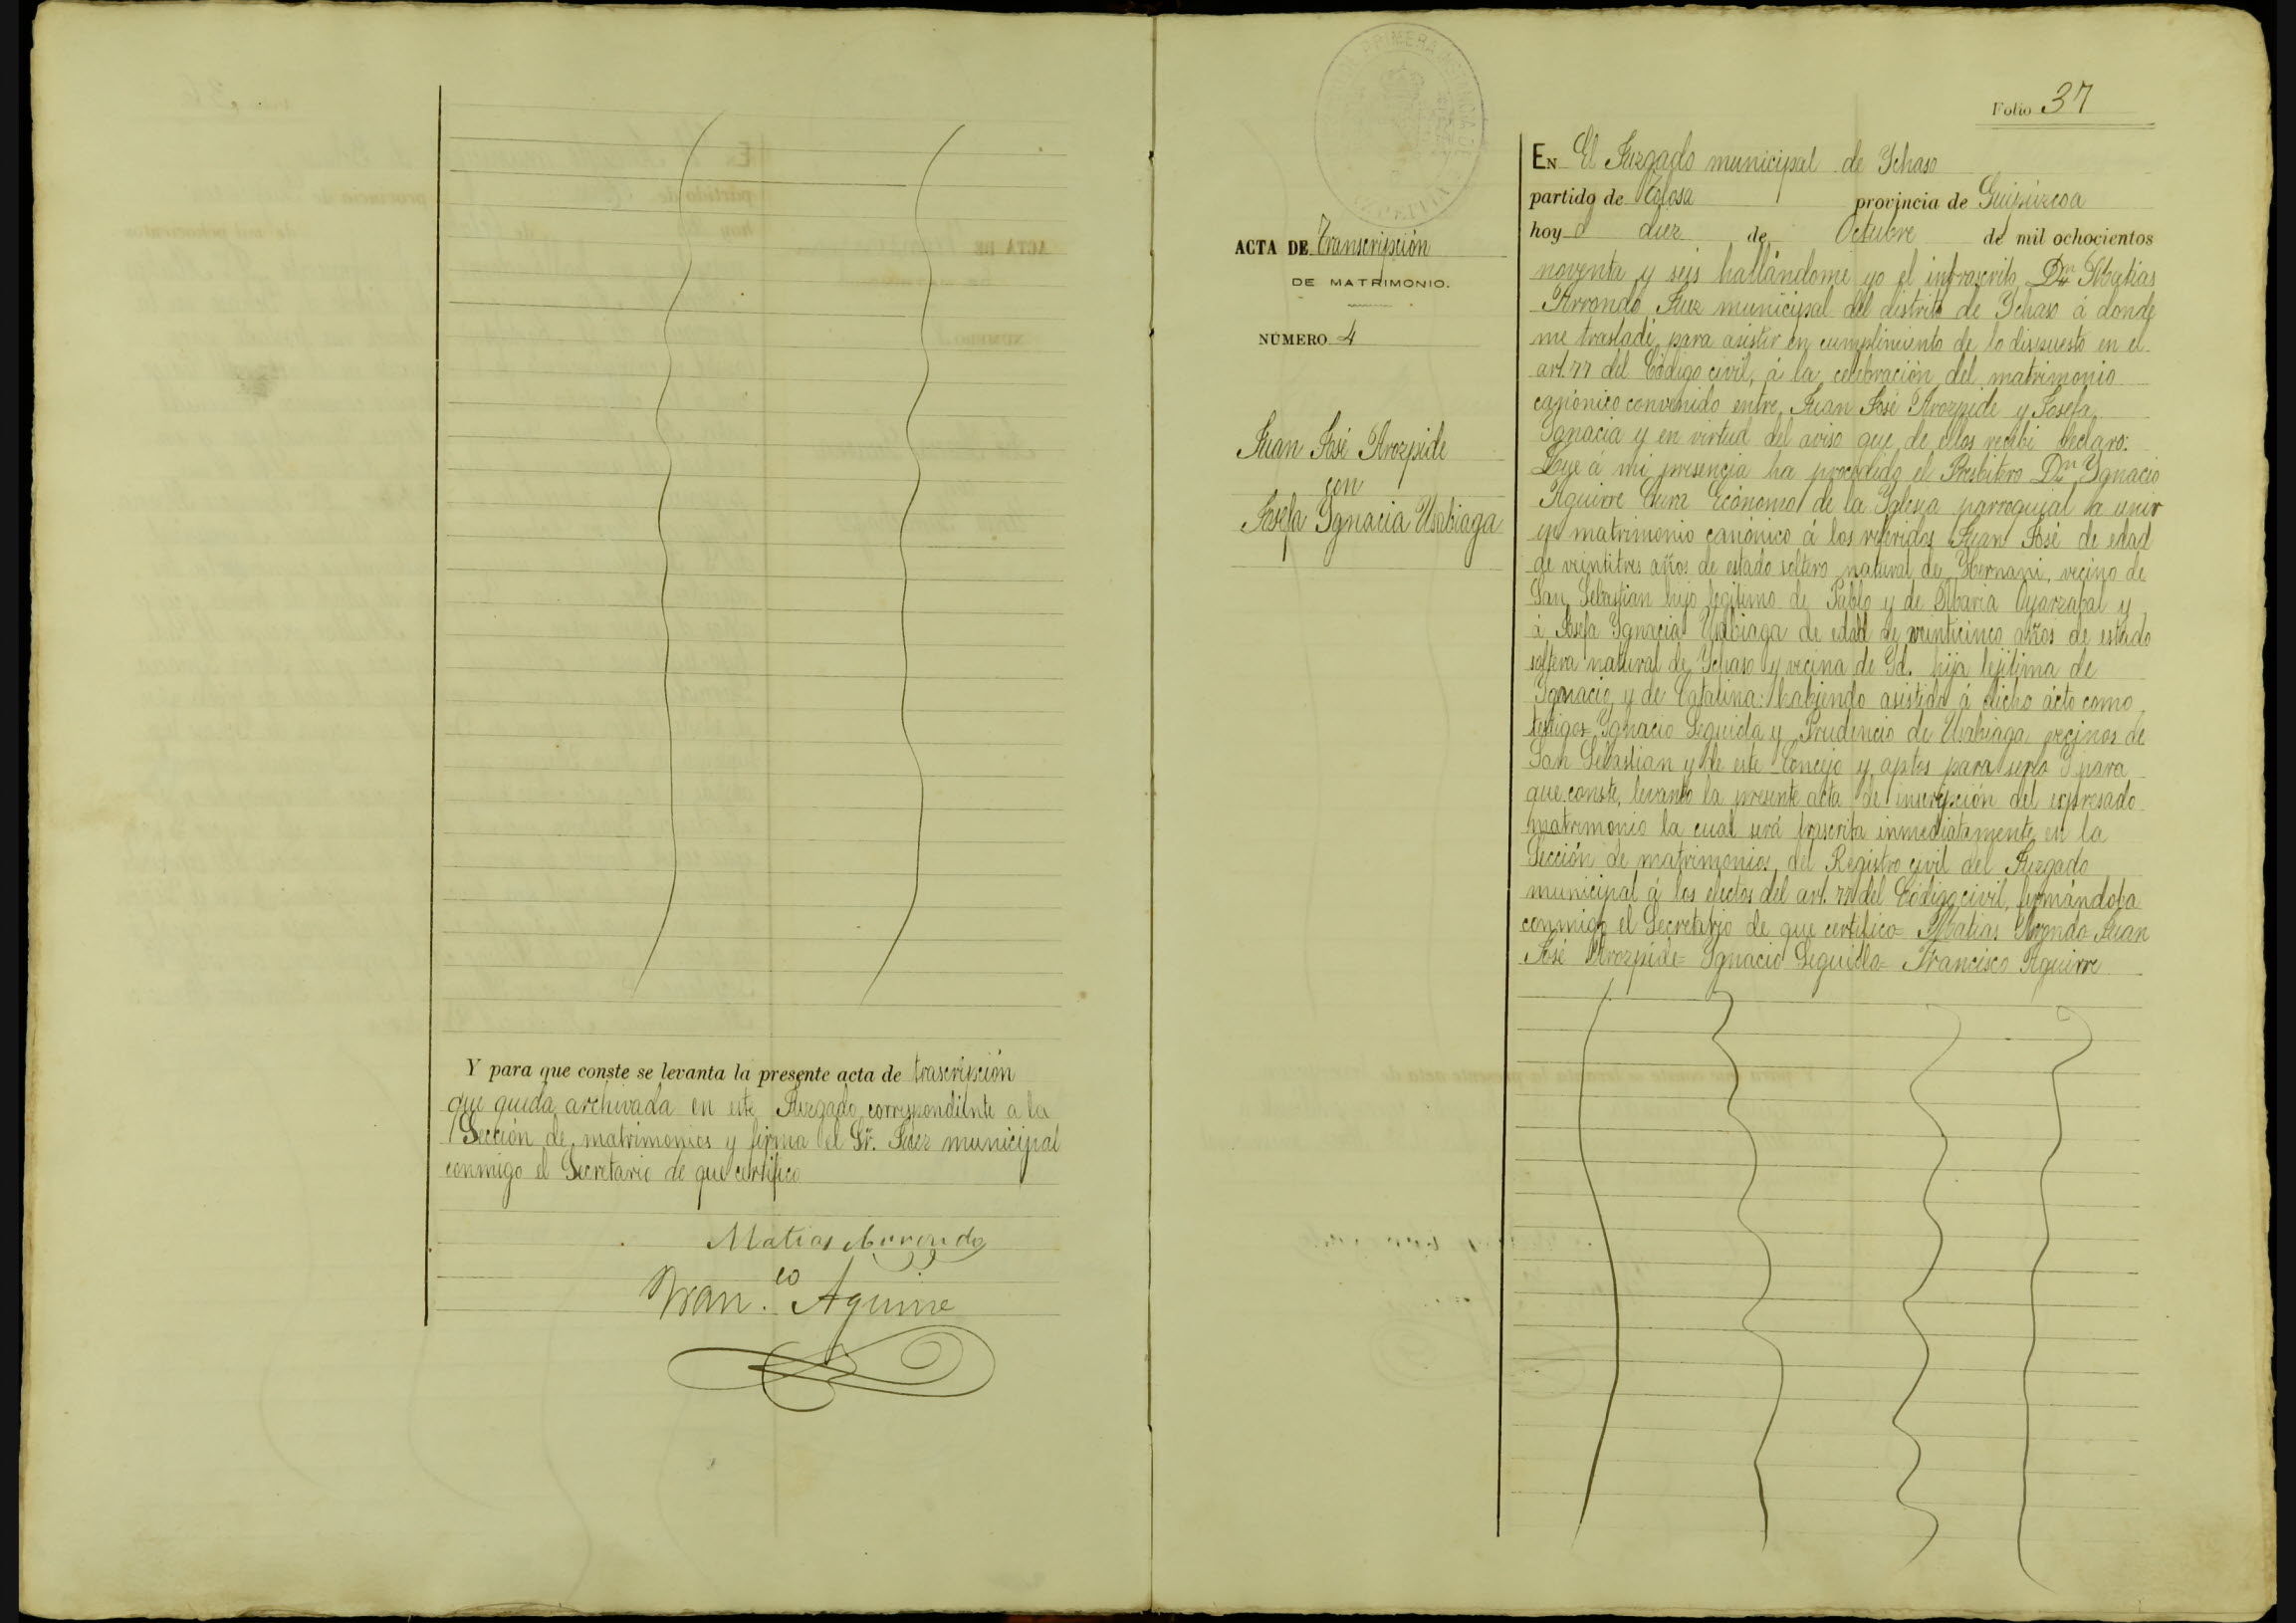 Y para que conste se levanta la presente acta de trascripción
que queda archivada en este Juzgado correspondiente a la
Sección de matrimonios y firma el Sr. Juez municipal
conmigo el Secretario de que certifico
Matias Arrondo
Fran.co Aguirre
JUZGADO DE PRIMERA INSTANCIA DE
AZPEITIA
Folio 37
ACTA DE Transcripción
DE MATRIMONIO.
NÚMERO 4
Juan José Arozpide
con
Josefa Ygnacia Usabiaga
EN El Juzgado municipal de Ychaso
partido de Tolosa provincia de Guipúzcoa
hoy á diez de Octubre de mil ochocientos
noventa y seis hallándome yo el infrascrito Dn Matias
Arrondo Juez municipal del distrito de Ychaso á donde
me trasladé para asistir en cumplimiento de lo dispuesto en el
art. 77 del Código civil, á la celebración del matrimonio
canónico convenido entre Juan José Arozpide y Josefa
Ygnacia y en virtud del aviso que de ellos recibí declaro:
Que á mi presencia ha procedido el Presbitero Dn Ygnacio
Aguirre Cura Ecónomo de la Yglesia parroquial á unir
en matrimonio canónico á los referidos Juan José de edad
de veintitres años de estado soltero natural de Hernani, vecino de
San Sebastian hijo legitimo de Pablo y de Maria Oyarzabal y
á Josefa Ygnacia Usabiaga de edad de veinticinco años de estado
soltera natural de Ychaso y vecina de Yd. hija lejitima de
Ygnacio y de Catalina: habiendo asistido á dicho ácto como
testigos Ygnacio Leguida y Prudencio de Usabiaga vecinos de
San Sebastian y de este Concejo y aptos para serlo Y para
que conste, levanto la presente acta de inscripción del expresado
matrimonio la cual será trascrita inmediatamente en la
Sección de matrimonios del Registro civil del Juzgado
municipal á los efectos del art. 77 del Código civil, firmándola
conmigo el Secretario de que certifico= Matias Arrondo Juan
José Arozpide= Ygnacio Leguida= Francisco Aguirre